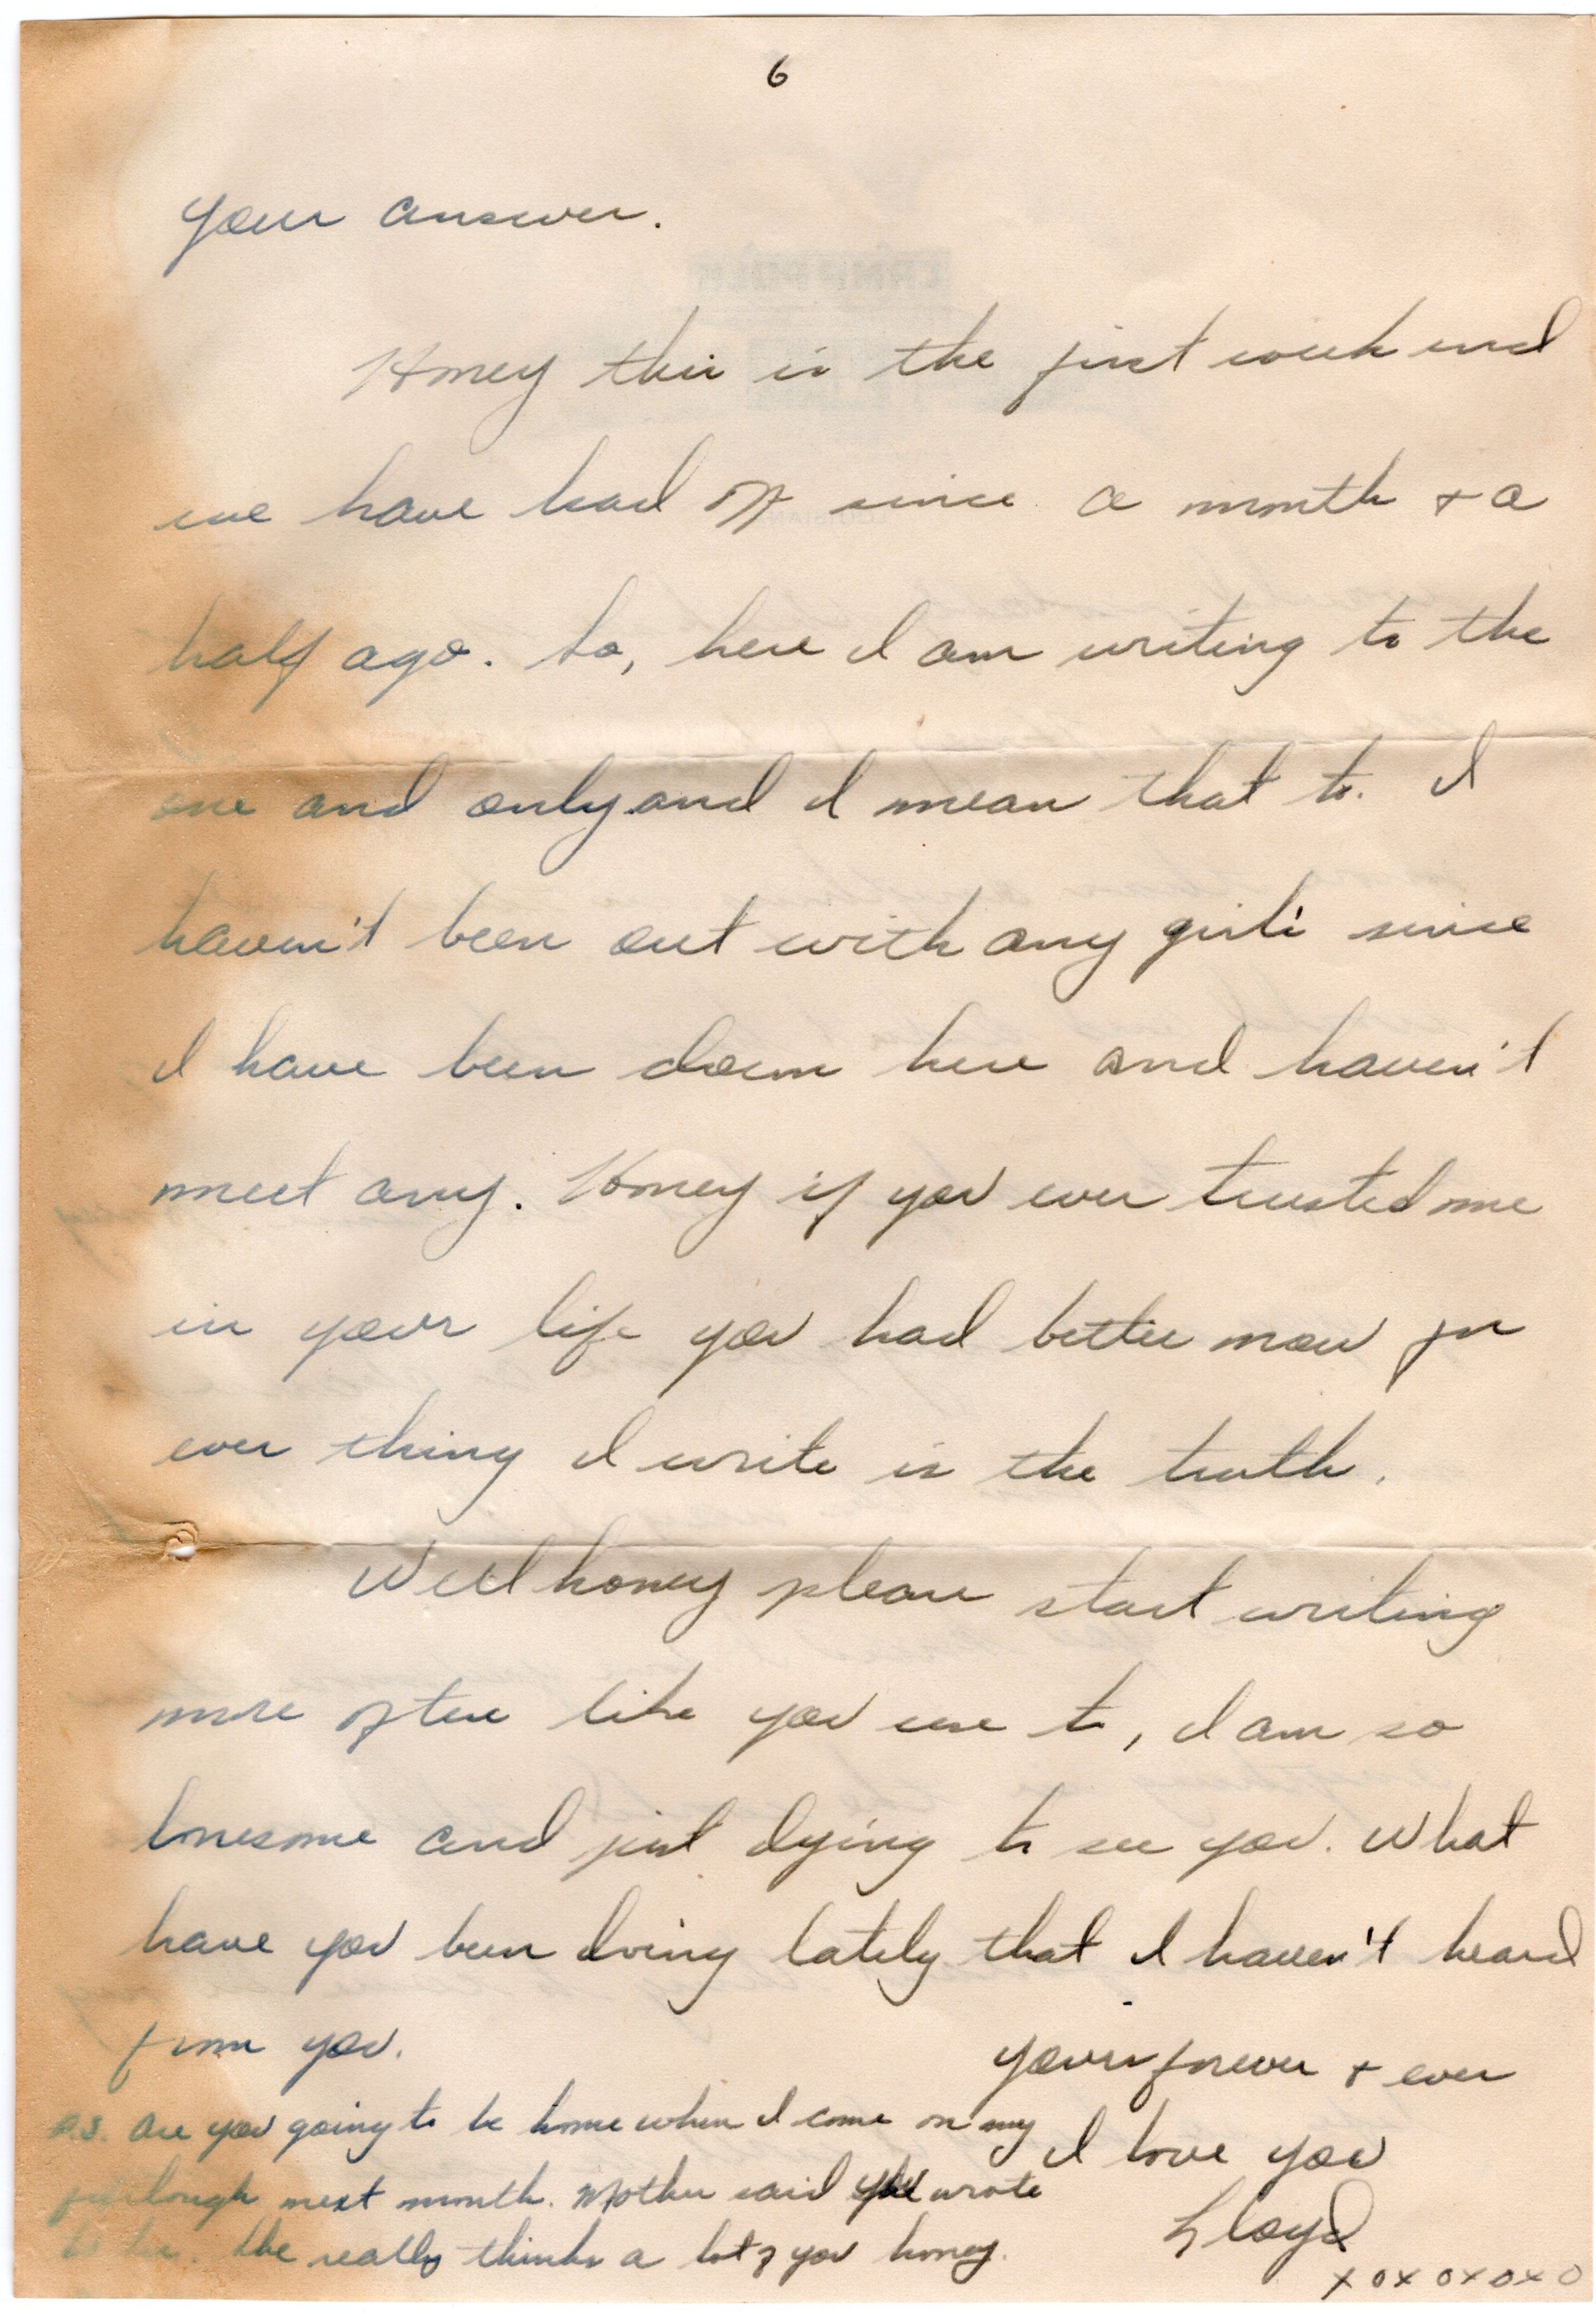 6
your answer.
Honey this is the first week end
we have had off since a month + a
half ago. So, here I am writing to the
one and only and I mean that to. I
haven't been out with any girls' since
I have been down here and haven't
meet any. Honey if you ever trusted me
in your life you had better now for
ever thing I write is the truth.
Well honey please start writing
more often like you use to, I am so
lonesome and just dying to see you. What
have you been doing lately that I haven't heard
from you.
Yours forever + ever
I love you
Lloyd
xoxoxoxo
P.S. Are you going to be home when I come on my
furlough next month. Mother said you wrote
to her. She really thinks a lot of you honey.